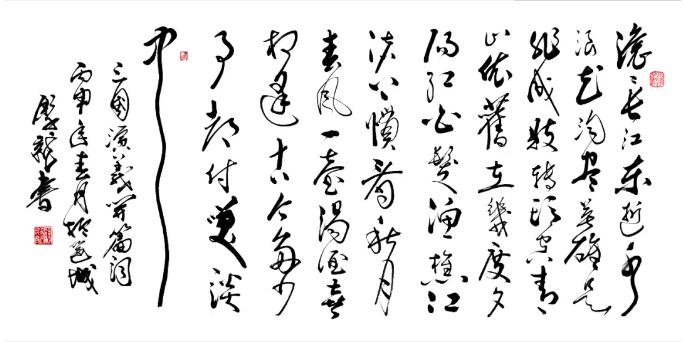 滚々长江东逝水
浪花淘尽英雄是
非成败转头空青
山依舊在幾度夕
阳红白髮渔樵江
渚上惯看秋月
春风一壶浊酒喜
相逢古今多少
事都付笑谈
中
三国演义开篇词
丙申年春月於邕城
书